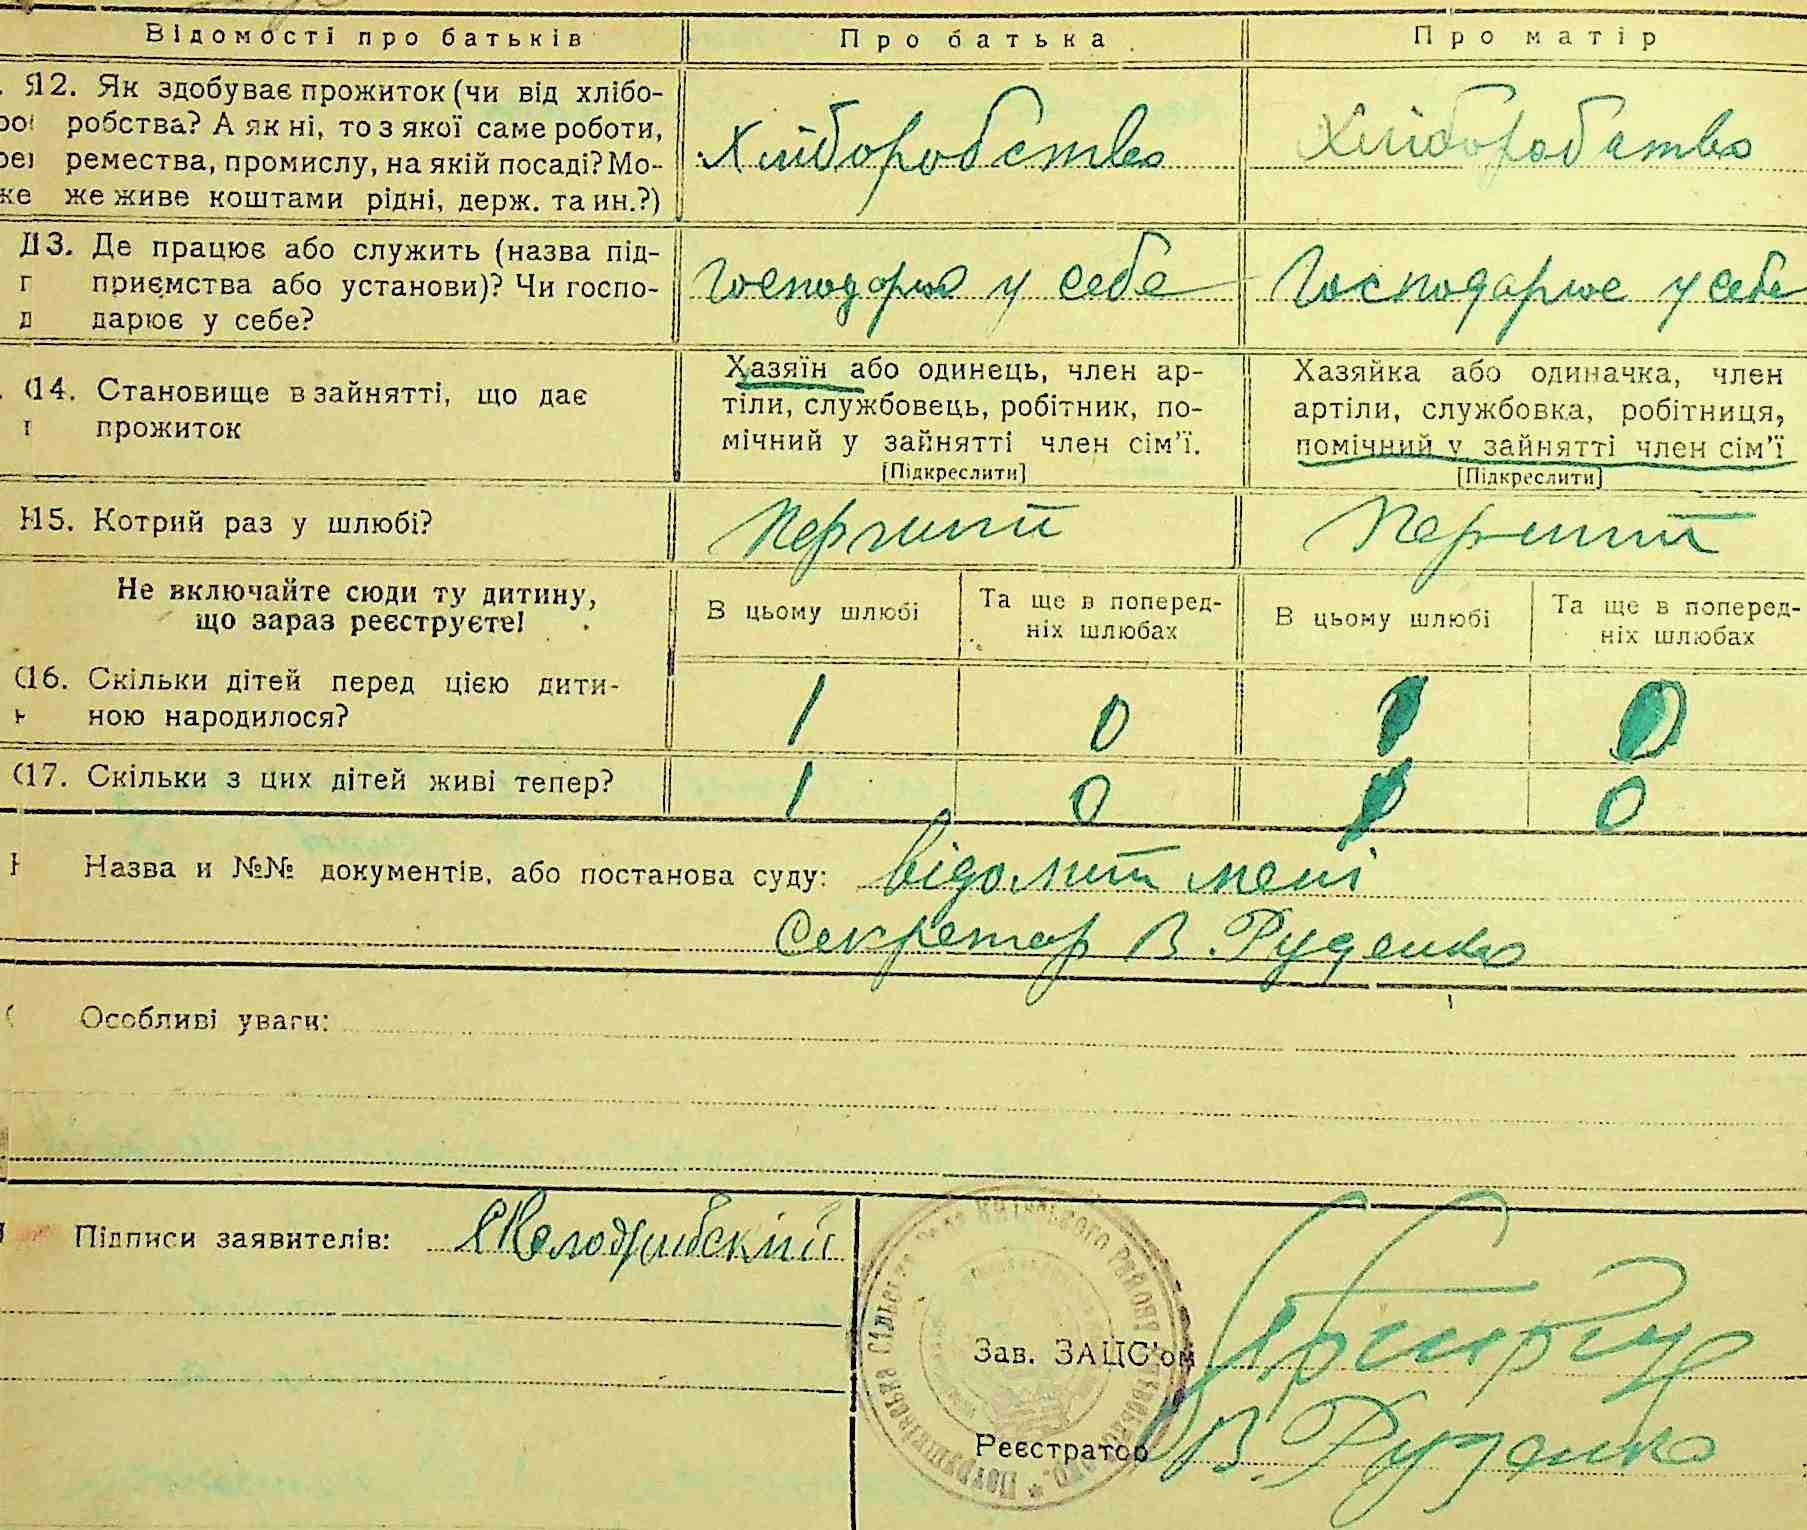 Відомості про батьків
Про батька
Про матір
12. Як здобуває прожиток (чи від хлібо-
робства? А як ні, то з якої саме роботи,
ремества, промислу, на якій посаді? Мо-
же живе коштами рідні, держ. та ин.?)
Хліборобство
Хліборобство
13. Де працює або служить (назва під-
приємства або установи)? Чи госпо-
дарює у себе?
Господарює у себе
Господарює у себе
14. Становище в зайнятті, що дає
прожиток
Хазяїн або одинець, член ар-
тіли, службовець, робітник, по-
мічний у зайнятті член сім'ї.
[Підкреслити]
Хазяйка або одиначка, член
артіли, службовка, робітниця,
помічний у зайнятті член сім'ї
[Підкреслити]
15. Котрий раз у шлюбі?
Перший
Перший
Не включайте сюди ту дитину,
що зараз реєструєте!
В цьому шлюбі
Та ще в поперед-
ніх шлюбах
В цьому шлюбі
Та ще в поперед-
ніх шлюбах
16. Скільки дітей перед цією дити-
ною народилося?
1
0
0
17. Скільки з цих дітей живі тепер?
1
0
0
Назва и №№ документів, або постанова суду: відомий мені
Секретар В. Руденко
Особливі уваги:
Підписи заявителів:
Зав. ЗАЦС'ом
Реєстратор В. Руденко